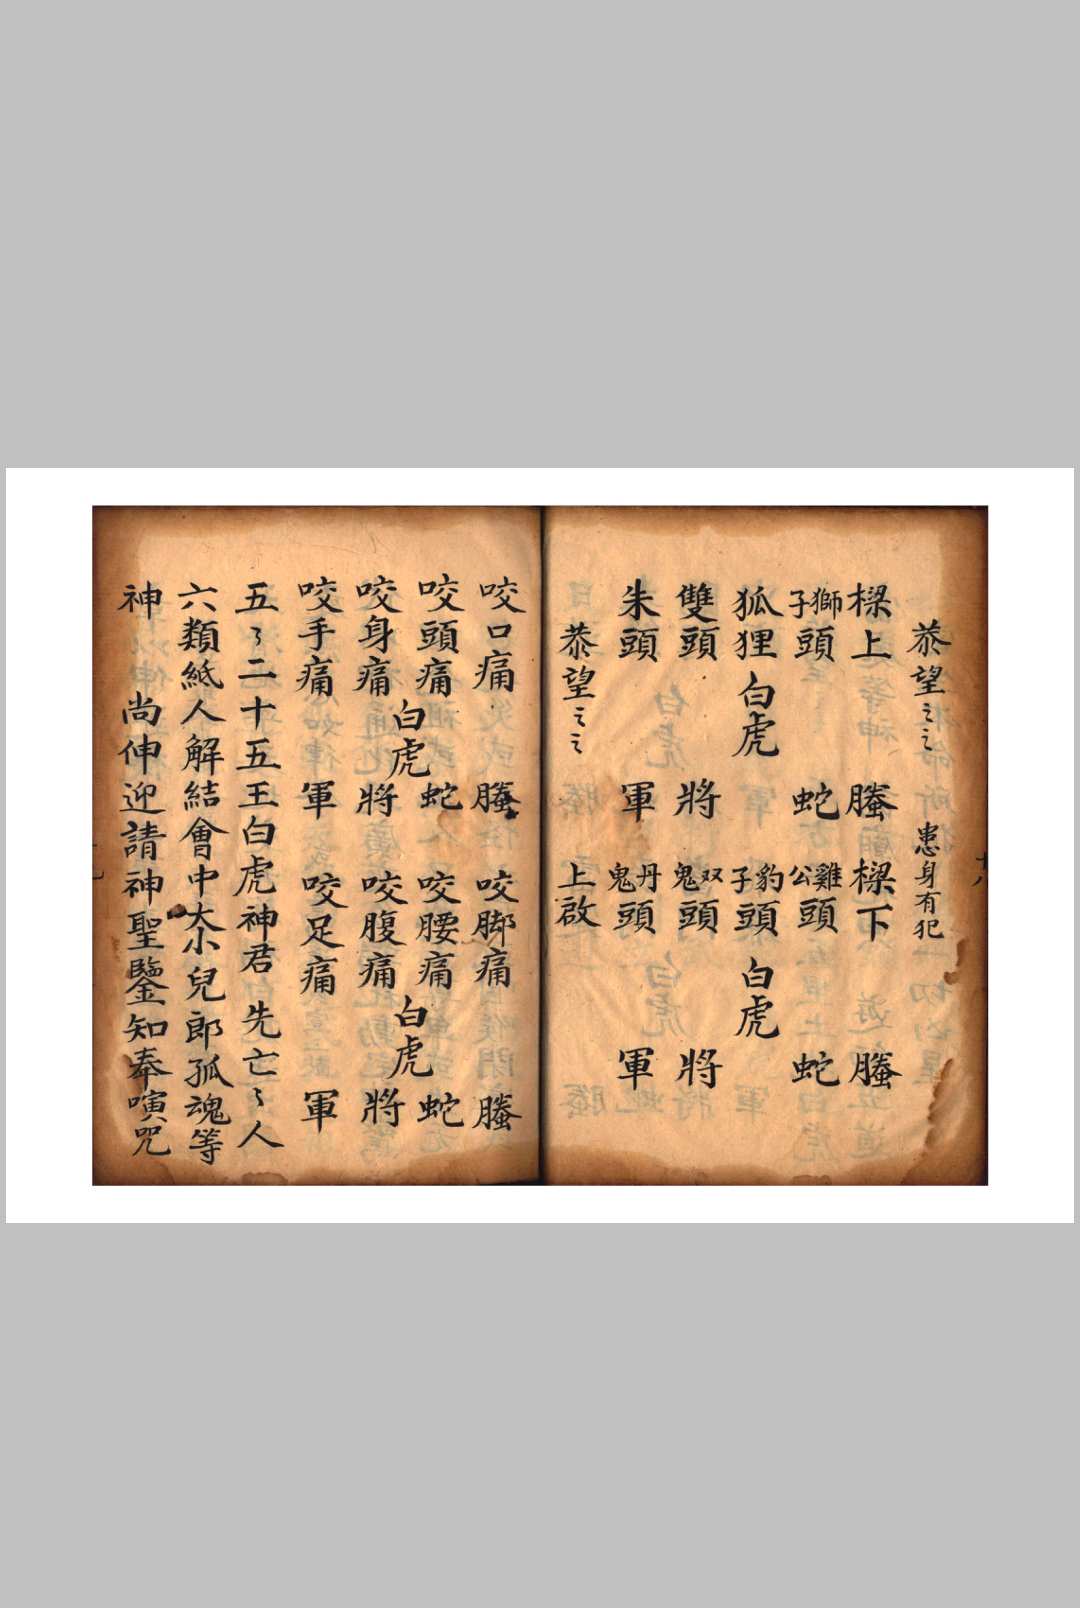 恭望〻〻 患身有犯
樑上 螣 樑下 螣
獅子頭 蛇 雞公頭 蛇
狐狸 豹子頭
白虎 白虎
雙頭 將 双鬼頭 將
朱頭 軍 丹鬼頭 軍
恭望〻〻 上啟
咬口痛 螣 咬脚痛 螣
咬頭痛 蛇 咬腰痛 蛇
白虎 白虎
咬身痛 將 咬腹痛 將
咬手痛 軍 咬足痛 軍
五〻二十五王白虎神君先亡〻人
六類紙人解結會中大小兒郎孤魂等
神 尚伸迎請神聖鑒知奉咒